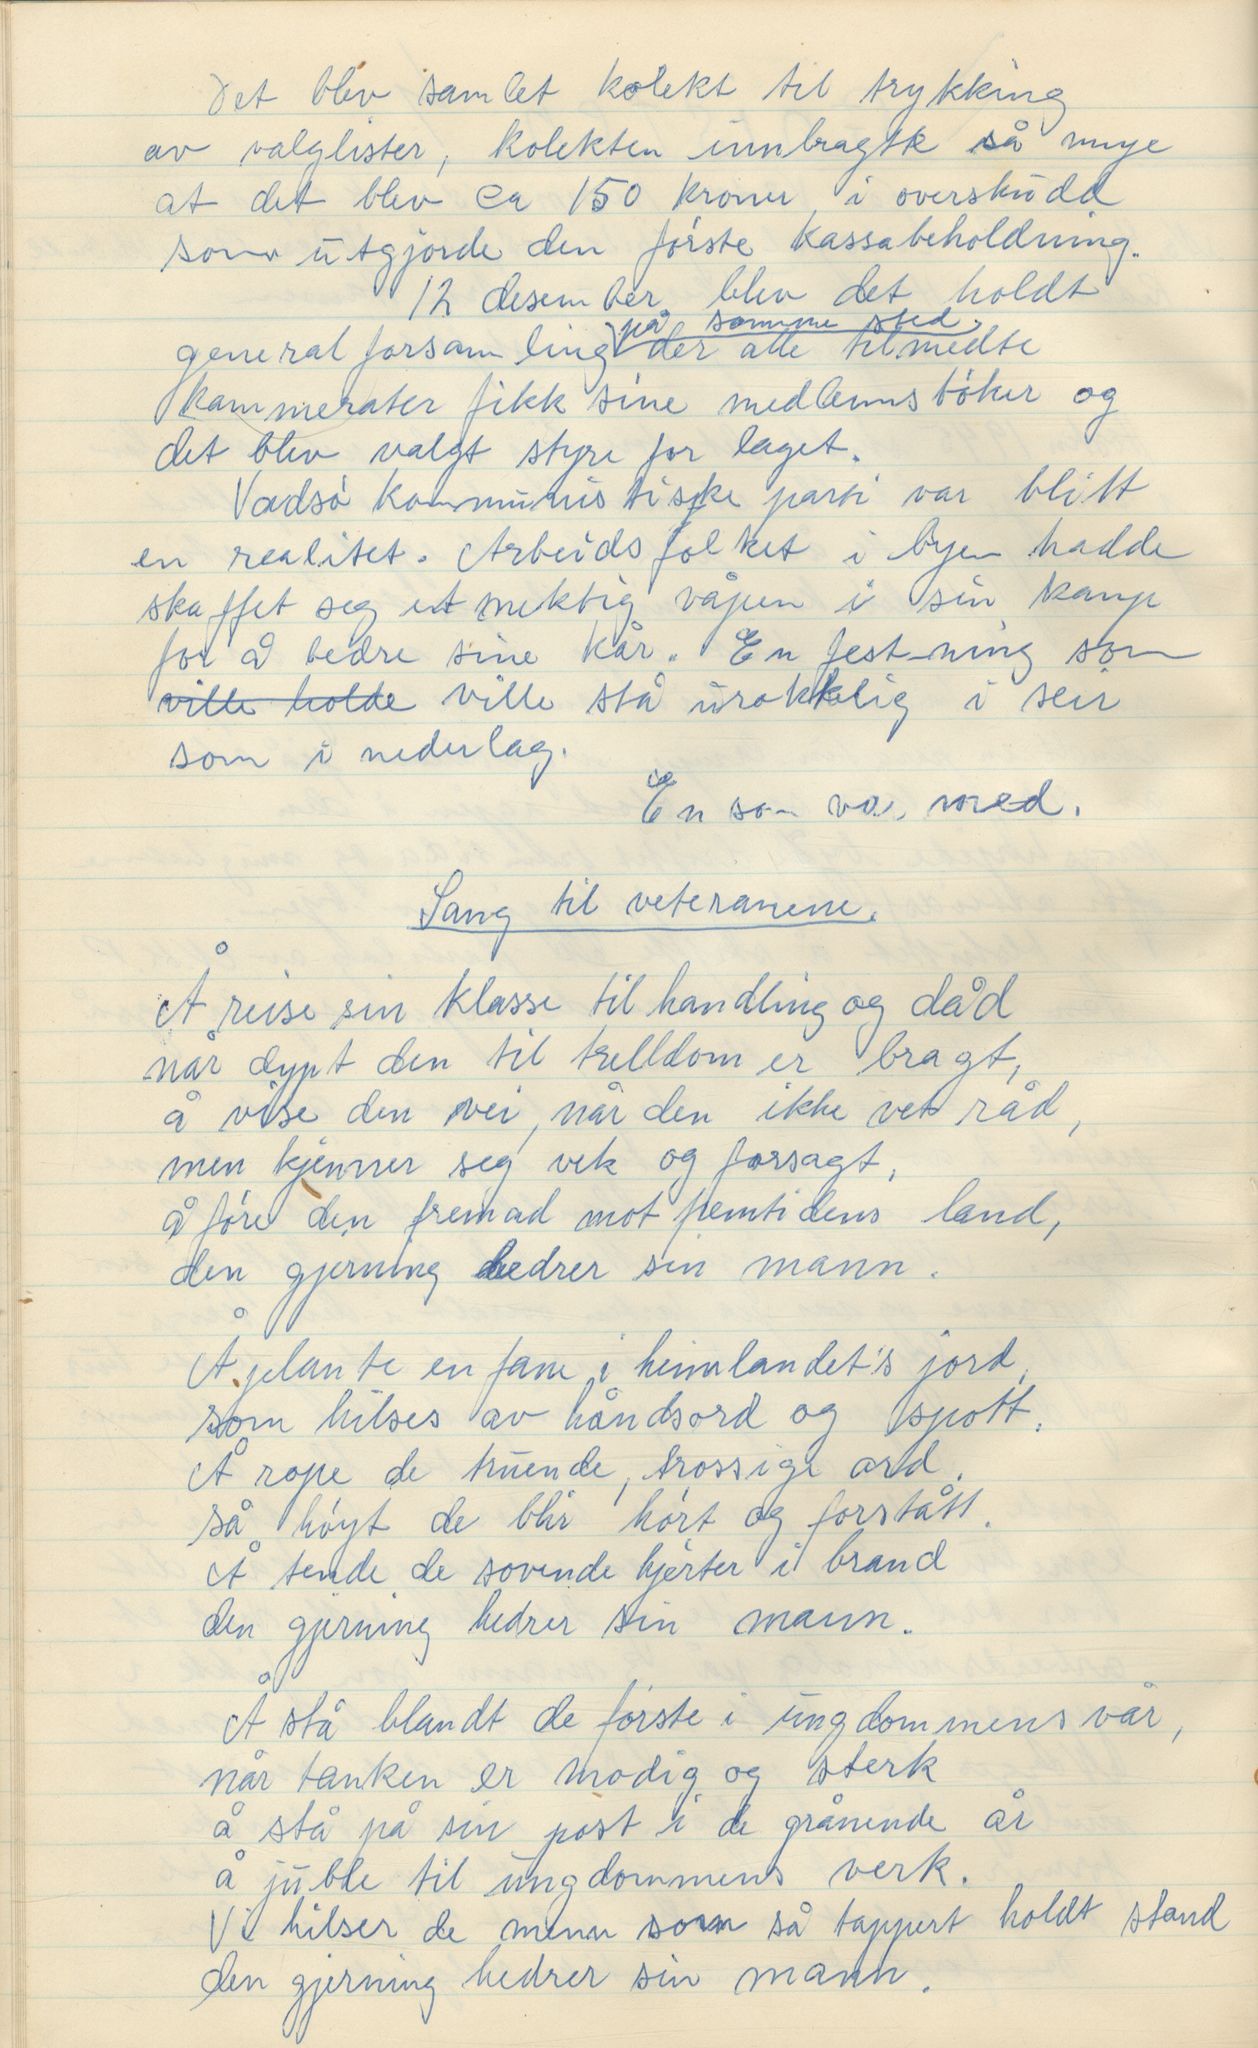 Det blev samlet kolekt til trykking
av valglister, kolekten innbragte så mye
at det blev ca 150 kroner i overskudd
som utgjorde den förste kassabeholdning.
12 desember blev det holdt
på samme sted,
generalforsamling der alle tilmedte
kammerater fikk sine medlemsböker og
det blev valgt styre for laget.
Vadsö kommunistiske parti var blitt
en realitet. Arbeidsfolket i byen hadde
skaffet seg et mektig våpen i sin kamp
for å bedre sine kår. En festning som
ville holde ville stå urokkelig i seir
som i nederlag.
En som var med.
Sang til veteranene.
Å reise sin klasse til handling og dåd
når dypt den til trelldom er bragt,
å vise den vei, når den ikke vet råd,
men kjenner seg vek og forsagt,
å före den fremad mot femtidens land,
den gjerning hedrer sin mann.
Å plante en fane i heimlandet's jord,
som hilses av håndsord og spott.
Å rope de truende, trossige ord,
så höyt de blir hört og forstått.
Å tende de sovende hjerter i brand
den gjerning hedrer sin mann.
Å stå blandt de förste i ungdommens vår,
når tanken er modig og sterk
å stå på sin post i de grånende år
å juble til ungdommens verk.
Vi hilser de menn som så tappert holdt stand
den gjerning hedrer sin mann.